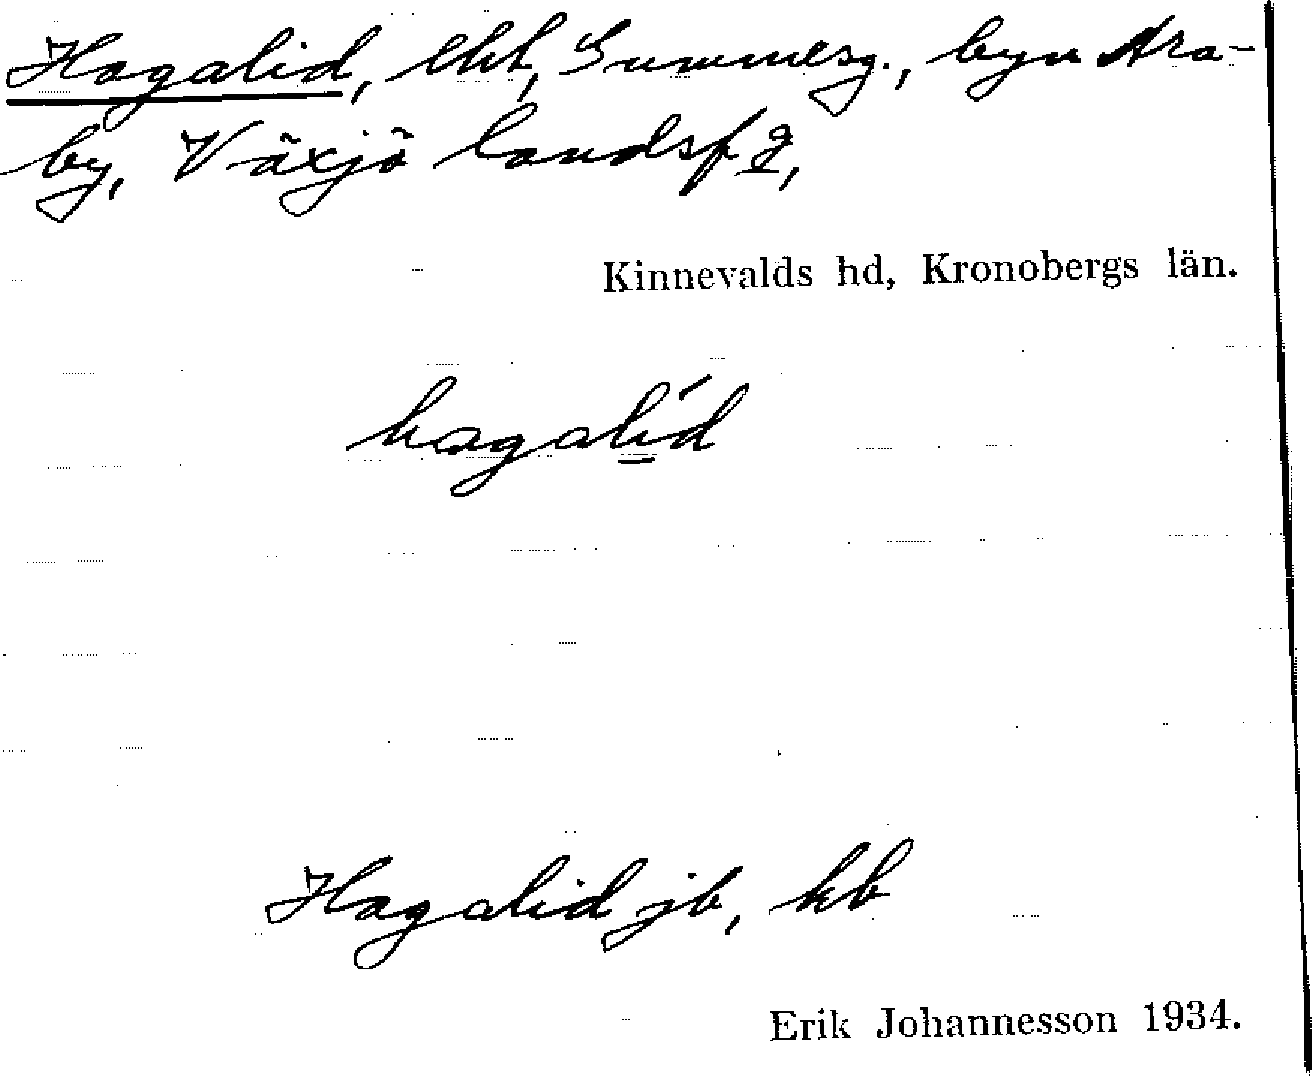 Hagalid, lht, Summesg., byn Ara-
by, Växjö landsf g,
Kinnevalds hd, Kronobergs län.
hagalíd
Hagalid jb, kb
Erik Johannesson 1934.